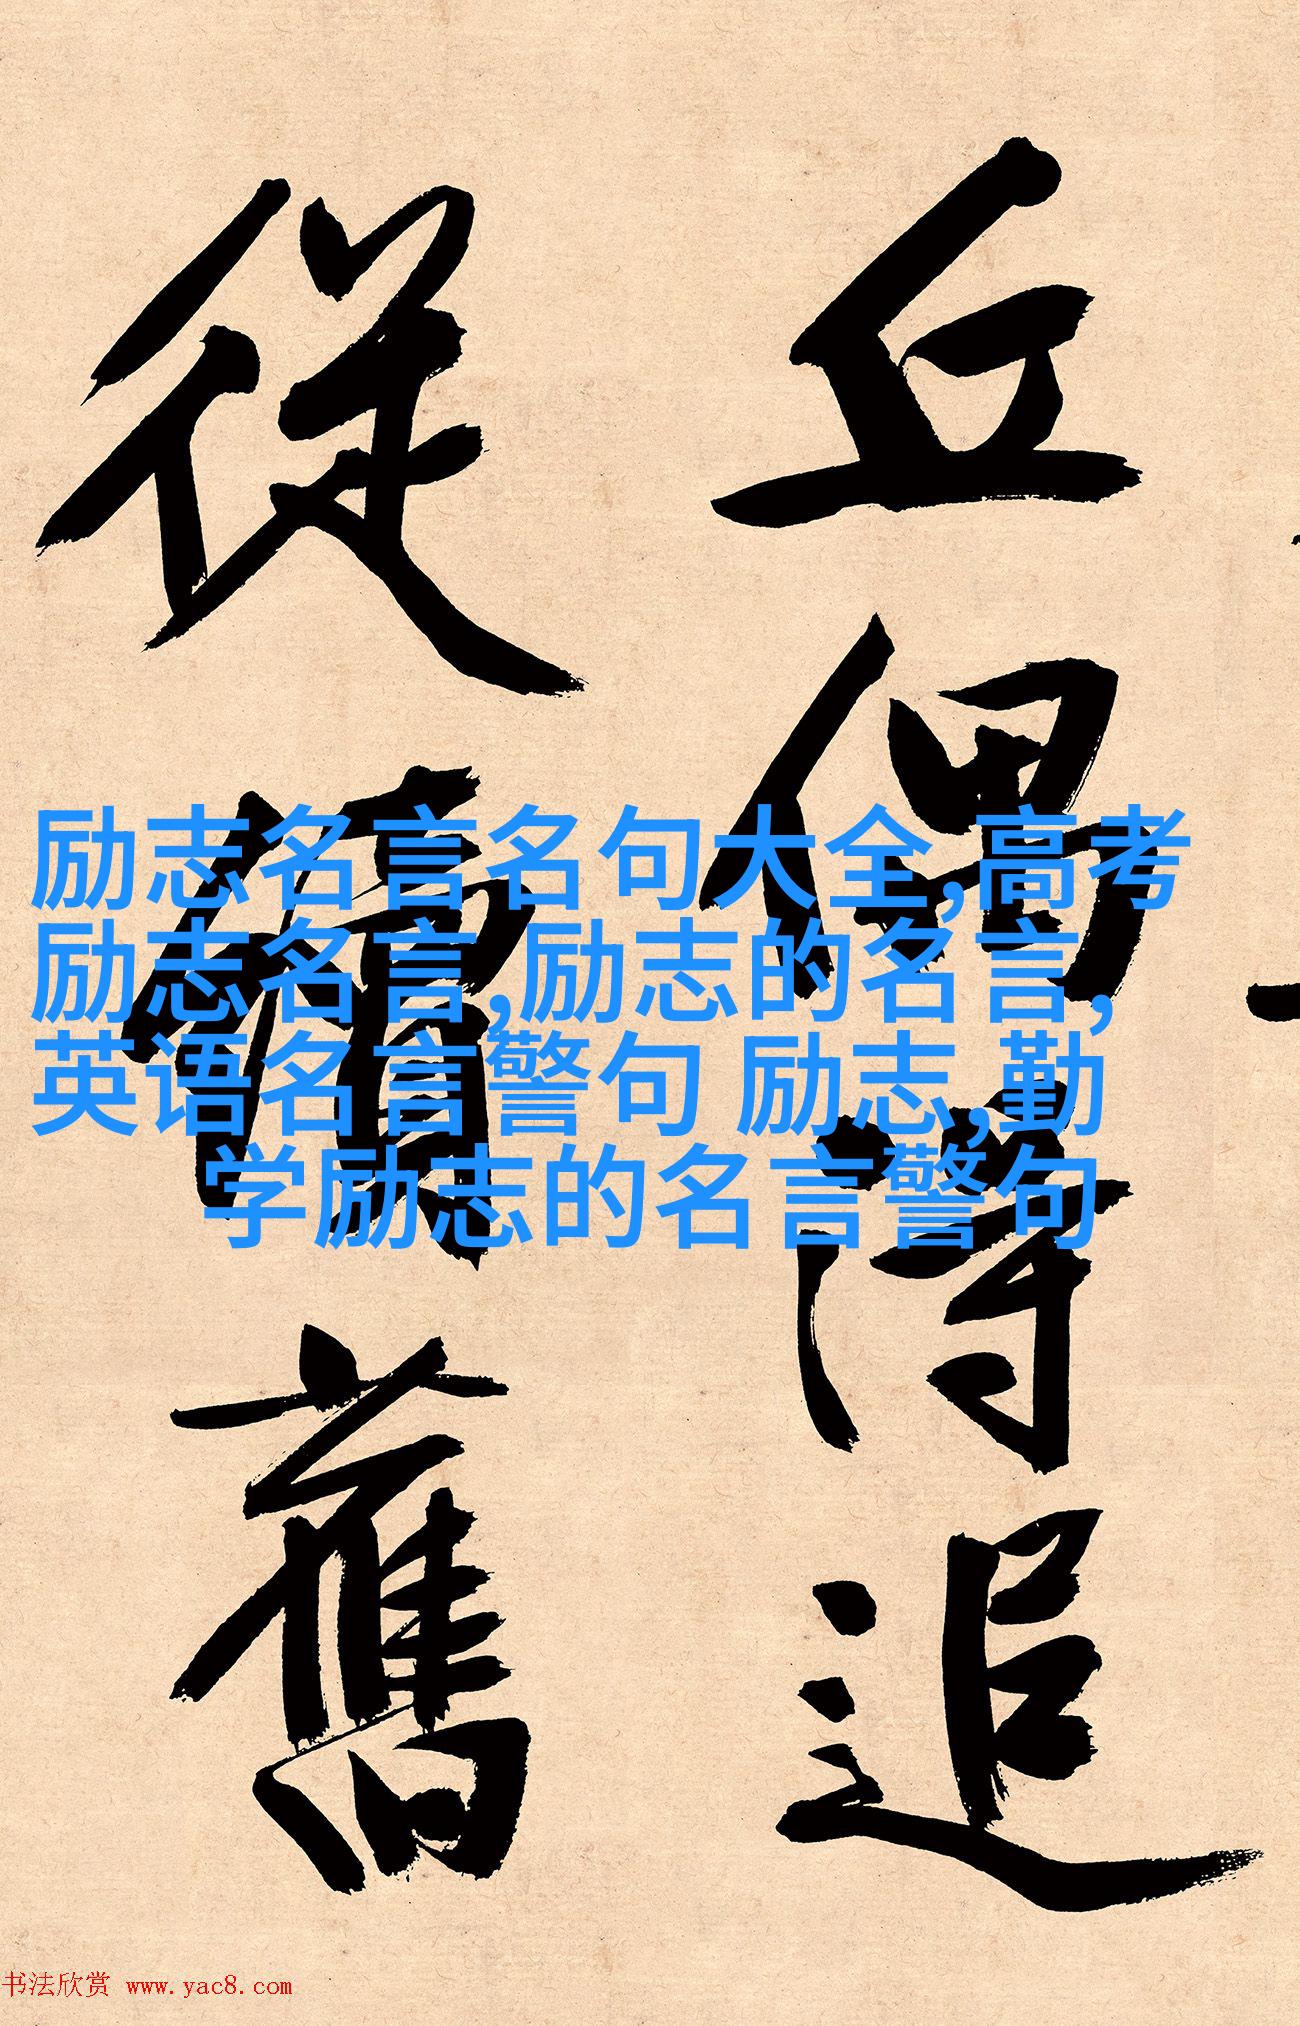 丘偶得追
從舊
励志名言名句大全,高考
励志名言,励志的名言,
英语名言警句 励志,勤
学励志的名言警句
书法欣赏 www.yac8.com